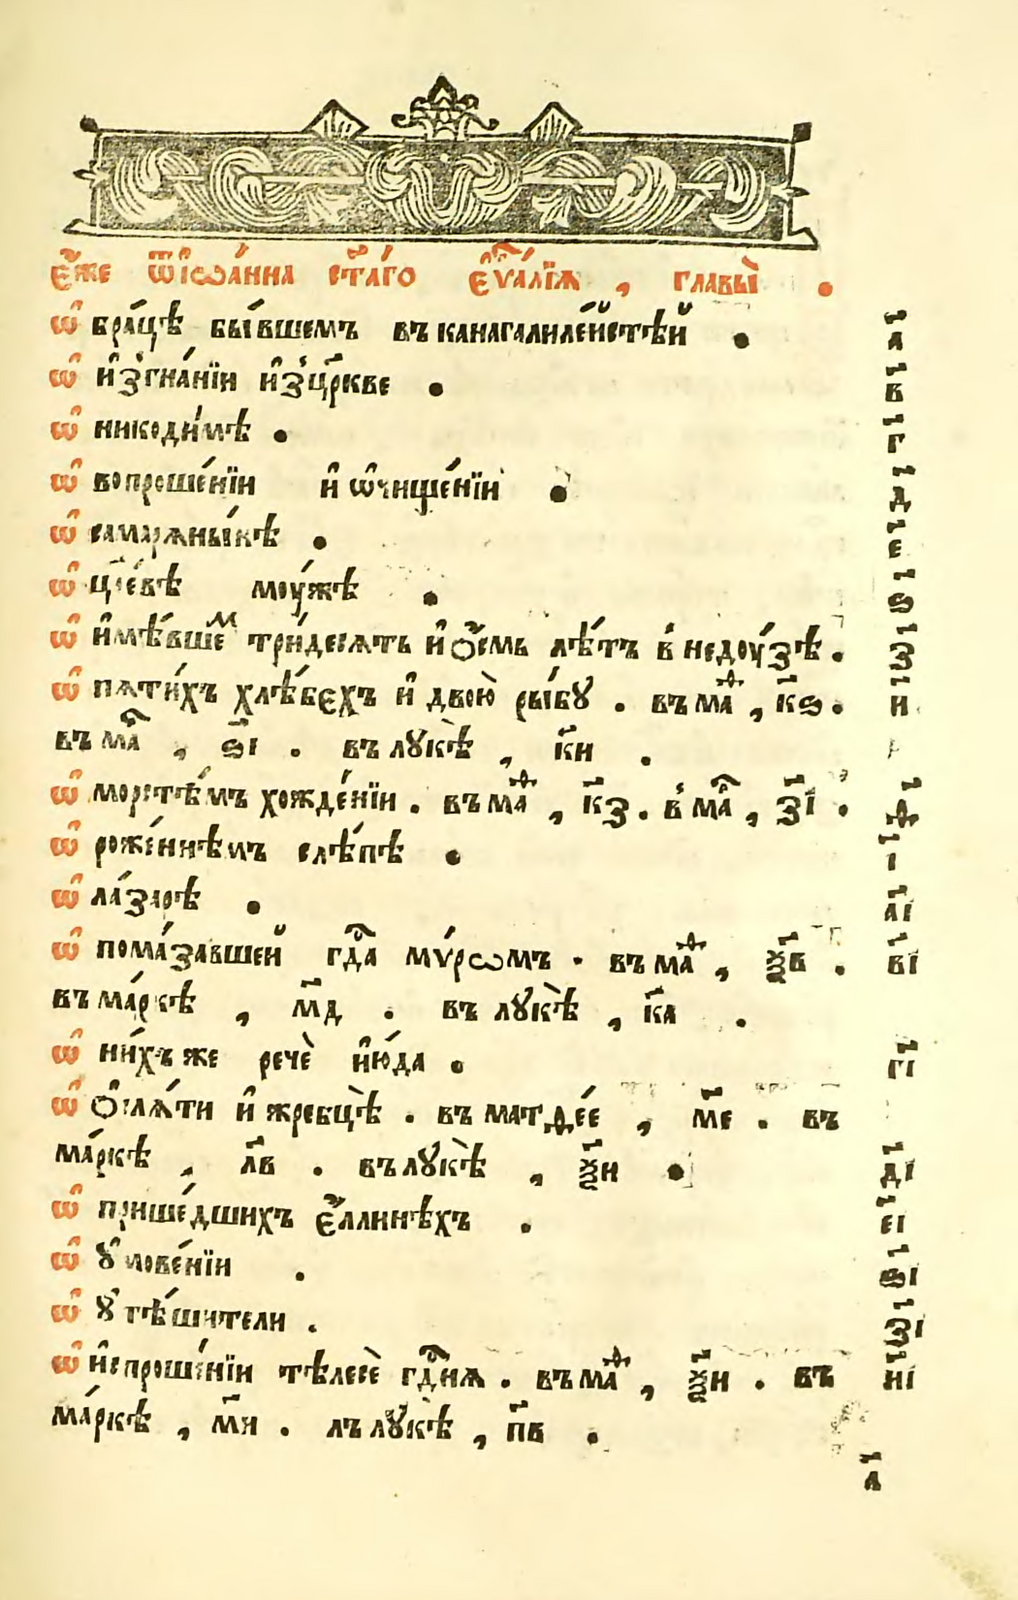 Є҆́же ѿі҆ѡа́нна ст҃а́го є҆ѵⷢ҇алїѧ , главы̀ .
ѡ҆ бра́цѣ бы́вшемъ въканагалиле́йстѣй . а҃
ѡ҆ и҆згна́нїи и҆зцр҃кве . в҃
ѡ҆ никоди́мѣ . г҃
ѡ҆ вопроше́нїи и҆ ѡ҆чище́нїи . д҃
ѡ҆ самарѧны́нѣ . е҃
ѡ҆ цр҃е́вѣ моу́жѣ . ѕ҃
ѡ҆ и҆мѣ́вшеⷨ три́десѧть и҆ ѻ҆́смь лѣ́тъ в недоу́зѣ . з҃
ѡ҆ пѧти́хъ хлѣ́бєхъ и҆ двою̀ ры́бꙋ . въ маⷴ҇ , к҃ѕ . и҃
въ маⷬ҇ , ѕ҃і . въ лꙋкѣ̀ , к҃и .
ѡ҆ морстѣ́мъ хожде́нїи . въ маⷴ҇ , к҃з . в маⷬ҇ , з҃і . ѳ҃
ѡ҆ роже́ннѣмъ слѣ́пѣ . і҃
ѡ҆ ла́зарѣ . а҃і
ѡ҆ пома́завшей гдⷭ҇а мѵ́рѡмъ . въ маⷴ҇ , ѯ҃в . в҃і
въ ма́ркѣ , м҃д . въ лꙋкѣ̀ , к҃а .
ѡ҆ ни́хъже речѐ и҆ю́да . г҃і
ѡ҆ ѻ҆слѧ́ти и҆ жребцѣ̀ . въ матѳе́е , м҃е . въ
ма́ркѣ , л҃в . въ лꙋкѣ̀ , ѯ҃и . д҃і
ѡ҆ прише́дшихъ є҆́ллинѣхъ . е҃і
ѡ҆ ꙋ҆мове́нїи . ѕ҃і
ѡ҆ ꙋ҆тѣ́шители . з҃і
ѡ҆ и҆спроше́нїи тѣлесѐ гдⷭ҇нѧ . въ маⷴ҇ , ѯ҃и . въ и҃і
ма́ркѣ , м҃и . въ лꙋкѣ̀ , п҃в .
а҃